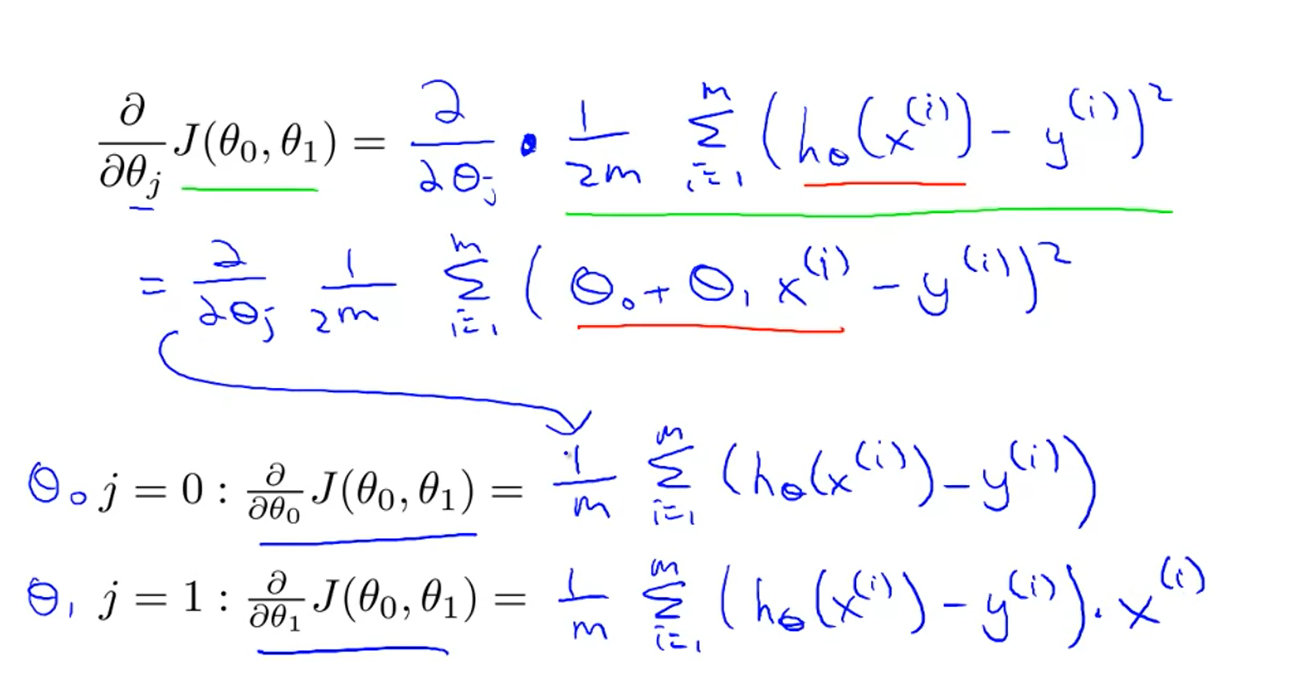 ∂/∂θ_j J(θ_0, θ_1) = ∂/∂θ_j · 1/2m Σ_{i=1}^{m} (h_θ(x^{(i)}) - y^{(i)})^2
= ∂/∂θ_j 1/2m Σ_{i=1}^{m} (θ_0 + θ_1 x^{(i)} - y^{(i)})^2
θ_0 j = 0 : ∂/∂θ_0 J(θ_0, θ_1) = 1/m Σ_{i=1}^{m} (h_θ(x^{(i)}) - y^{(i)})
θ_1 j = 1 : ∂/∂θ_1 J(θ_0, θ_1) = 1/m Σ_{i=1}^{m} (h_θ(x^{(i)}) - y^{(i)}) · x^{(i)}